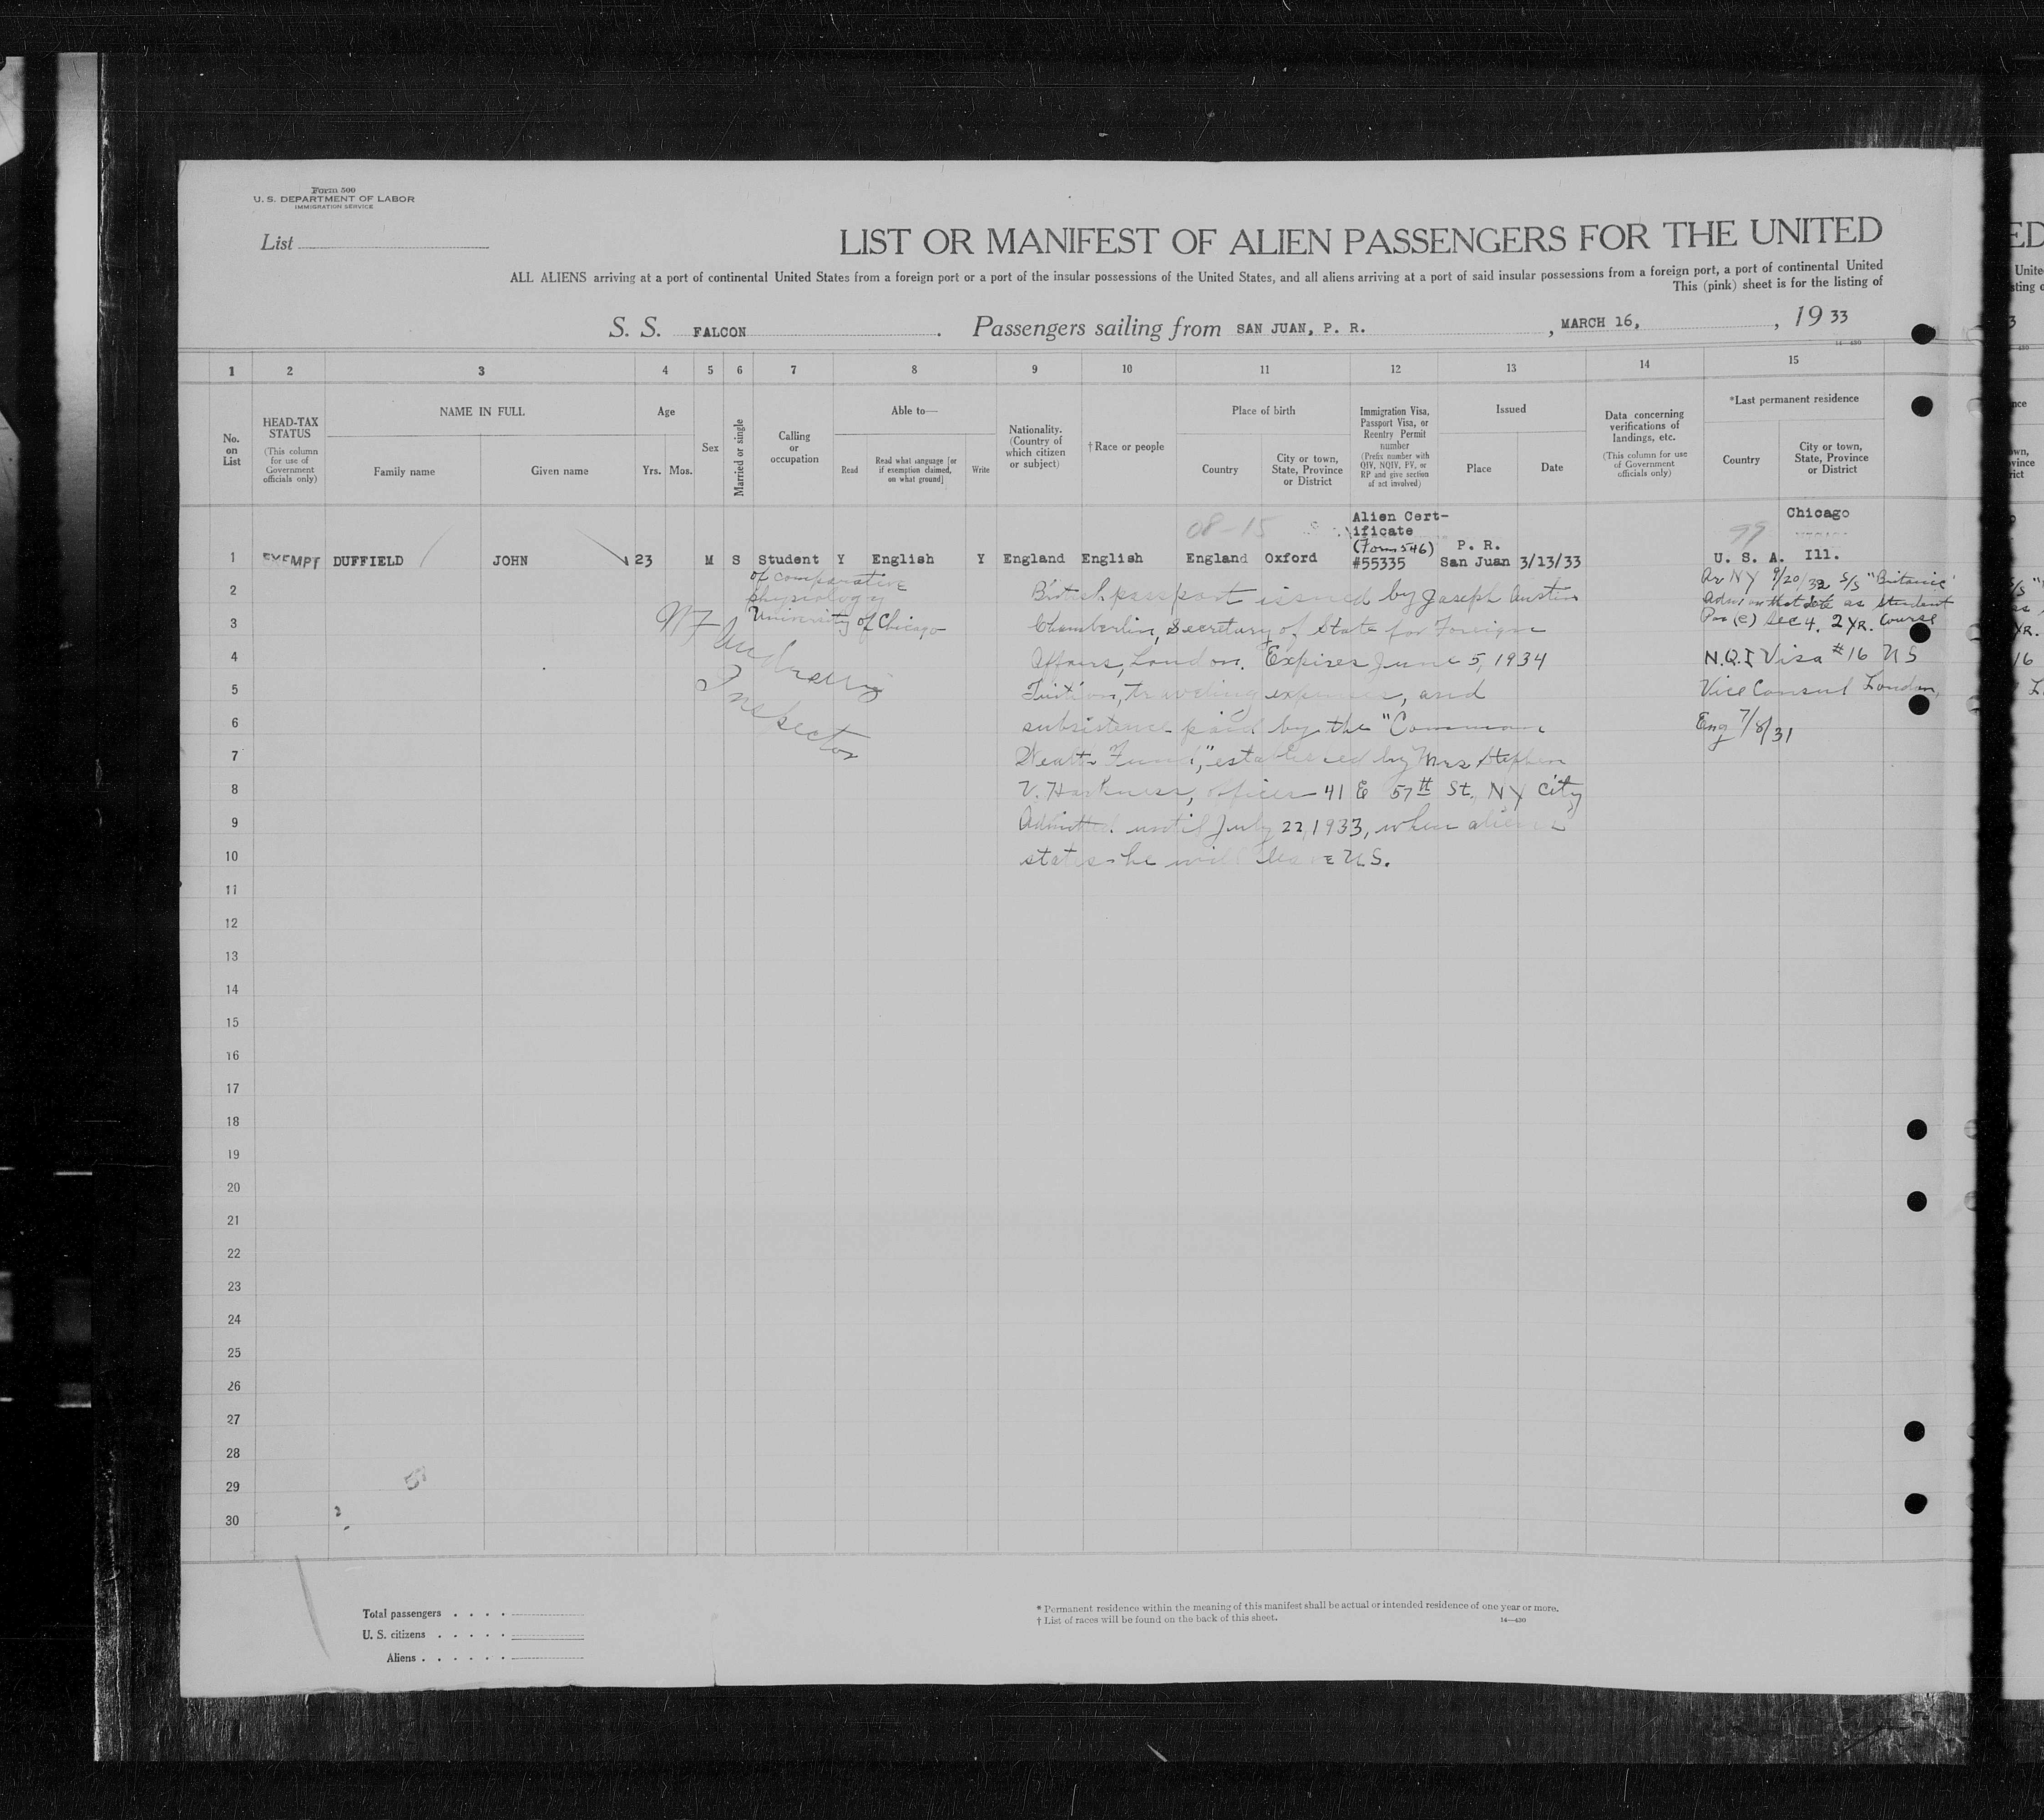 Form 500
U. S. DEPARTMENT OF LABOR
IMMIGRATION SERVICE
List
LIST OR MANIFEST OF ALIEN PASSENGERS FOR THE UNITED
ALL ALIENS arriving at a port of continental United States from a foreign port or a port of the insular possessions of the United States, and all aliens arriving at a port of said insular possessions from a foreign port, a port of continental United
This (pink) sheet is for the listing of
S. S. FALCON. Passengers sailing from SAN JUAN, P. R., MARCH 16, , 19 33
14—430
1 2 3 4 5 6 7 8 9 10 11 12 13 14 15
No. on List
HEAD-TAX STATUS
(This column for use of Government officials only)
NAME IN FULL
Family name
Given name
Age
Yrs. Mos.
Sex
Married or single
Calling or occupation
Able to—
Read
Read what language [or if exemption claimed, on what ground]
Write
Nationality. (Country of which citizen or subject)
† Race or people
Place of birth
Country
City or town, State, Province or District
Immigration Visa, Passport Visa, or Reentry Permit number
(Prefix number with QIV, NQIV, PV, or RP and give section of act involved)
Issued
Place
Date
Data concerning verifications of landings, etc.
(This column for use of Government officials only)
*Last permanent residence
Country
City or town, State, Province or District
08-15
Alien Cert-
ificate
(Form 546)
99
Chicago
1 EXEMPT DUFFIELD JOHN 23 M S Student Y English Y England English England Oxford #55335 P. R. San Juan 3/13/33 U. S. A. Ill.
of comparative
physiology
University of Chicago
Inspector
British passport issued by Joseph Austin
Chamberlin, Secretary of State for Foreign
Affairs, London. Expires June 5, 1934
Tuition, traveling expenses, and
subsistence paid by the "Common
Wealth Fund," established by Mrs Stephen
V. Harkness, offices 41 E 57th St., NY City
Admitted until July 22, 1933, when alien
states he will leave U.S.
Ar NY 9/20/32 S/S "Britanic"
Adm on that date as student
Par (e) Sec 4. 2 YR. Course
N.Q.I Visa #16 US
Vice Consul London,
Eng 7/8/31
2
3
4
5
6
7
8
9
10
11
12
13
14
15
16
17
18
19
20
21
22
23
24
25
26
27
28
29
30
Total passengers . . . .
U. S. citizens . . . . .
Aliens . . . . . .
* Permanent residence within the meaning of this manifest shall be actual or intended residence of one year or more.
† List of races will be found on the back of this sheet.
14—430